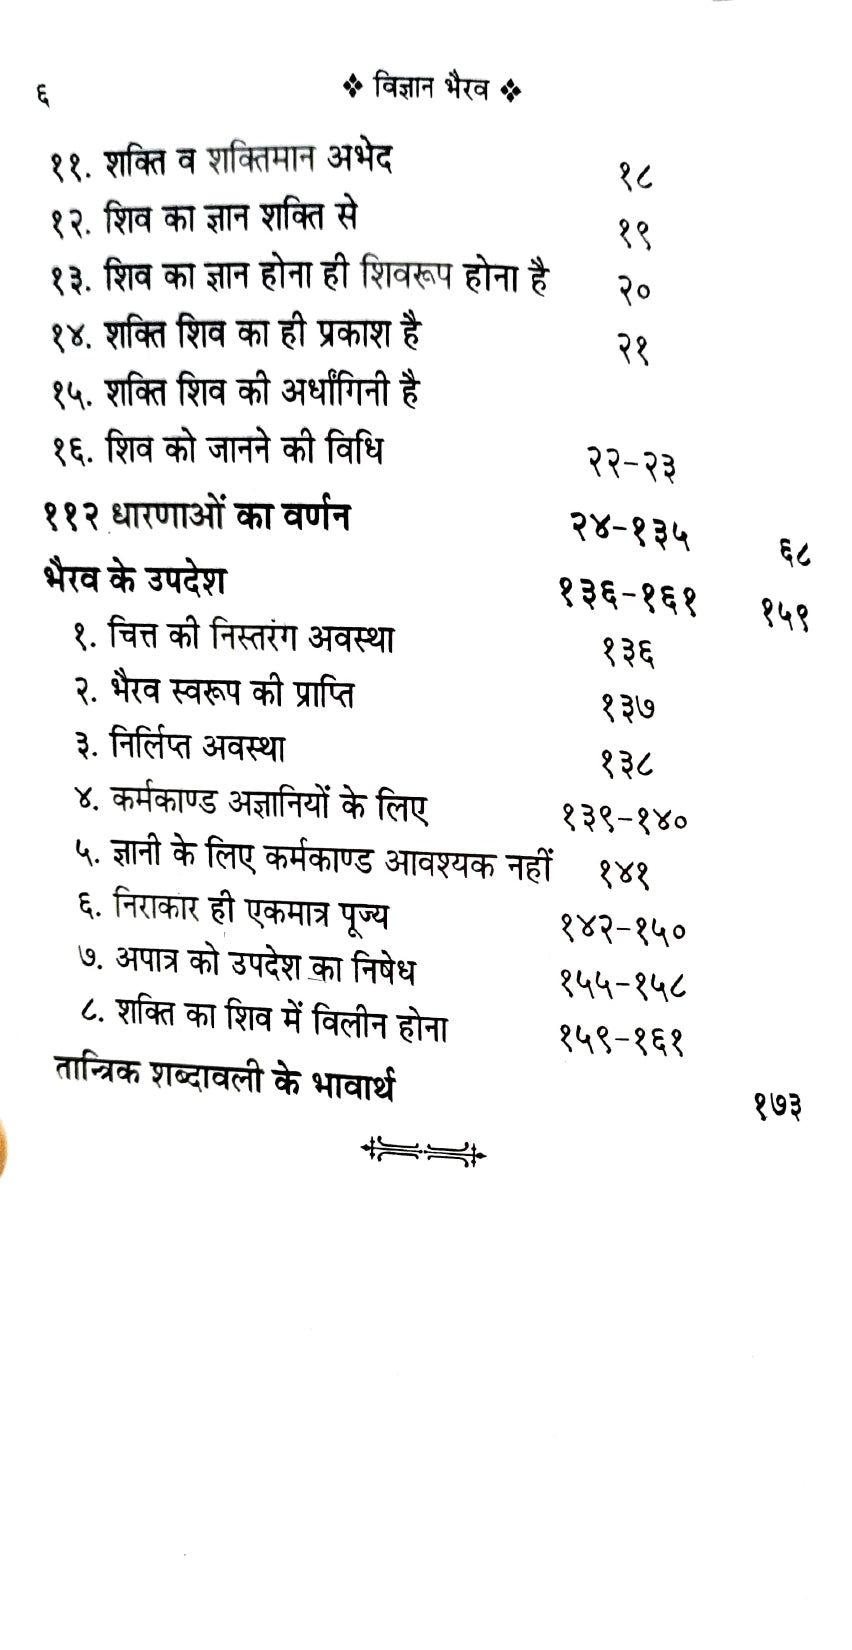 ६ ❖ विज्ञान भैरव ❖
११. शक्ति व शक्तिमान अभेद १८
१२. शिव का ज्ञान शक्ति से १९
१३. शिव का ज्ञान होना ही शिवरूप होना है २०
१४. शक्ति शिव का ही प्रकाश है २१
१५. शक्ति शिव की अर्धांगिनी है
१६. शिव को जानने की विधि २२-२३
११२ धारणाओं का वर्णन २४-१३५ ६८
भैरव के उपदेश १३६-१६१ १५९
१. चित्त की निस्तरंग अवस्था १३६
२. भैरव स्वरूप की प्राप्ति १३७
३. निर्लिप्त अवस्था १३८
४. कर्मकाण्ड अज्ञानियों के लिए १३९-१४०
५. ज्ञानी के लिए कर्मकाण्ड आवश्यक नहीं १४१
६. निराकार ही एकमात्र पूज्य १४२-१५०
७. अपात्र को उपदेश का निषेध १५५-१५८
८. शक्ति का शिव में विलीन होना १५९-१६१
तान्त्रिक शब्दावली के भावार्थ १७३